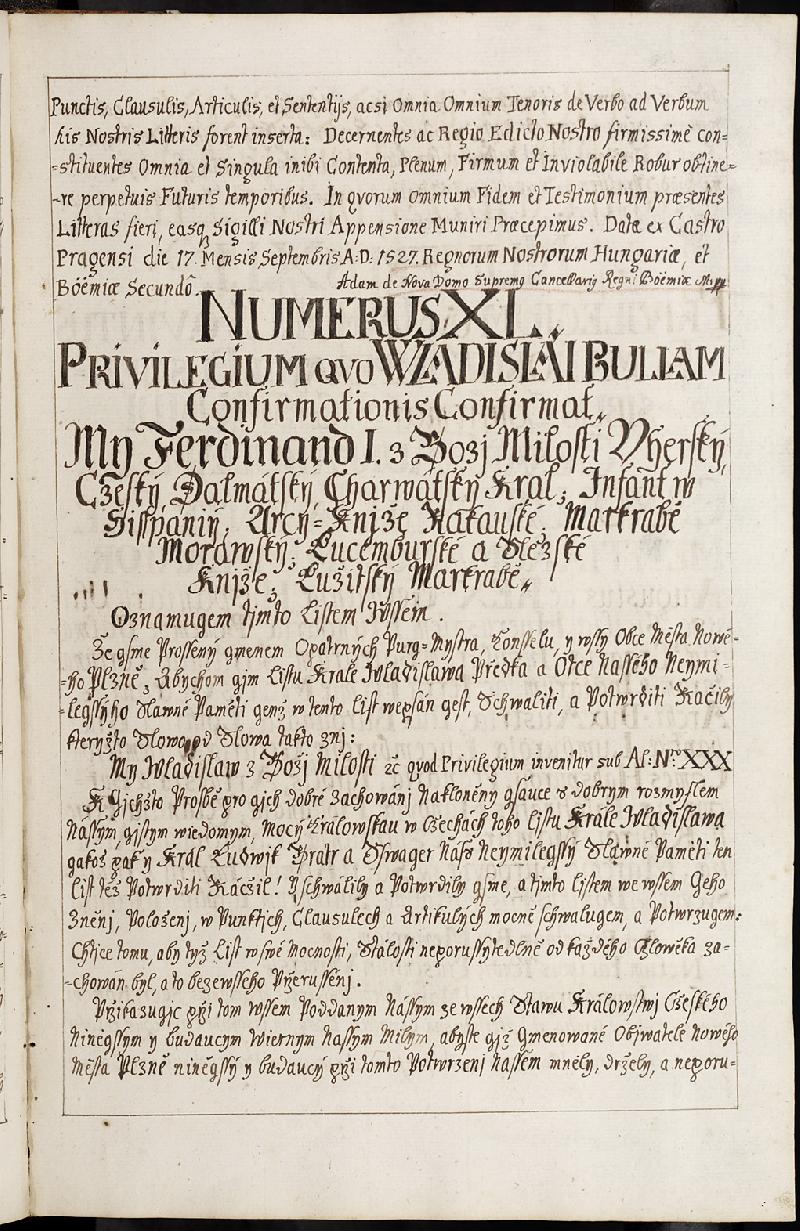 Punctis, Clausulis, Articulis, et Sententijs, acsi Omnia Omnium Tenoris de Verbo ad Verbum
his Nostris Litteris forent inserta: Decernentes ac Regio Edicto Nostro firmissime con=
=stituentes Omnia et Singula inibi Contenta, Plenum, Firmum et Inviolabile Robur obtine=
=re perpetuis Futuris temporibus. In qvorum omnium Fidem et Testimonium præsentes
Litteras fieri, easq Sigilli Nostri Appensione Muniri Præcepimus. Data ex Castro
Pragensi die 17. Mensis Septembris A: D: 1527. Regnorum Nostrorum Hungariæ, et
Böemiæ Secundô.
Adam de Nova Domo Supremg Cancellarig Regni Böemiæ Mpp
NUMERUS XL.
PRIVILEGIUM QVO WLADISLAI BULLAM
Confirmationis Confirmat.
My Ferdinand I. z Bozj Milosti Vherský,
Czeský, Dalmátský, Charwátský Král, Infant w
Hispánij, Arcy=Knjže Rakauské, Markrabě
Morawský, Lucemburské a Slezské
Knjže, Lužitský Markrabě,,
Oznamugem tjmto Listem Wssem.
Že gsme Prosseny gmenem Opatrných Purg=Mystra, Konsselu, y wssy Obce Města Nowé=
=ho Plzně, Abychom gim Listu Krale Wladislawa Předka a Otce Nasseho Neymi=
=legssyho Slawné Paměti genž w tento list wepsán gest, Schwaliti, a Potwrditi Račily
kteryžto Slowo od Slowa takto znj:
My Wladislaw z Božj Milosti ꝛc qvod Privilegium invenitur sub Al: Nro XXX
K Gjchžto Prosbě pro gich dobré Zachowánj Nakloněny gsauce s dobrym rozmyslem
Nássym, gistym wiedomym, Mocý Kralowskau w Czechách toho listu Krále Wladislawa
gakož pak y Král Ludwjk Bratr a Sswager Náss Neymilegssý Slawné Paměti ten
list též Potwrditi Ráčzil! Y schwálily a Potwrdily gsme, a tjmto listem we wssem Geho
Zněnj, Položenj, w Punktjch, Clausulech a Artikulých mocně schwalugem, a Potwrzugem:
Chtjce tomu, aby týž List w swé Mocnosti, Stálosti neporussytedlně od každého Cžlowěka za=
=chowán byl, a to beze wsseho Pržerussenj.
Pržikazugjc při tom wssem Poddanym Nassym ze wssech Stawu Králowstwj Czeského
Ninégssym y budaucym Wiernym Nassym Milym, abyste gjž Gmenowané Obywatele Nowého
Města Plzně ninégssý y budaucý při tomto Potwrzenj Nassem mněly, držely, a neporu=